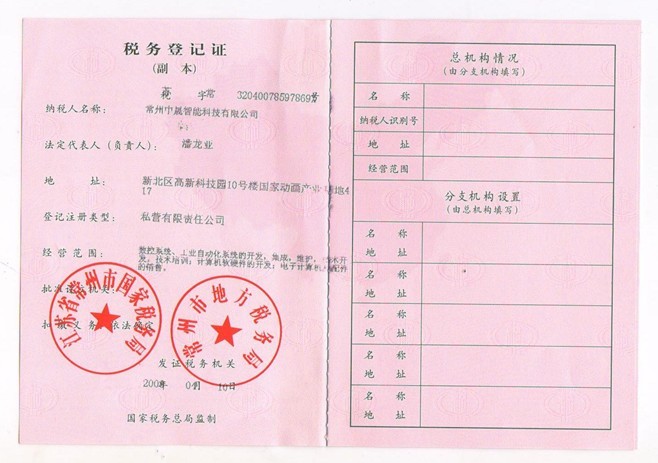 税务登记证
(副 本)
税 字 320400785978697号
纳税人名称： 常州中晟智能科技有限公司
法定代表人（负责人）： 潘龙业
地 址： 新北区高新科技园10号楼国家动画产业基地4
17
登记注册类型： 私营有限责任公司
经营范围： 数控系统、工业自动化系统的开发，集成，维护，技术开
发，技术培训；计算机软硬件的开发；电子计算机及配件
的销售。
批准设立机关：
扣缴义务：依法确定
江苏省常州市国家税务局
常州市地方税务局
发证税务机关
国家税务总局监制
总机构情况
(由分支机构填写)
名 称
纳税人识别号
地 址
经营范围
分支机构设置
(由总机构填写)
名 称
地 址
名 称
地 址
名 称
地 址
名 称
地 址
名 称
地 址